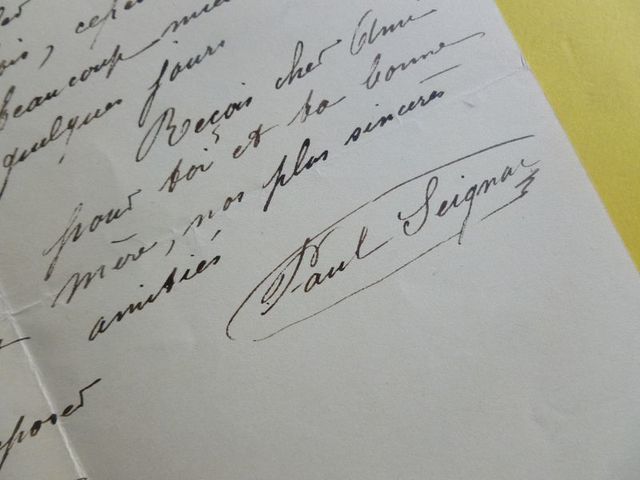 beaucoup mieu
quelques jours
Reçois cher Ami
pour toi et ta bonne
mère, nos plus sincères
amitiés
Paul Seignac